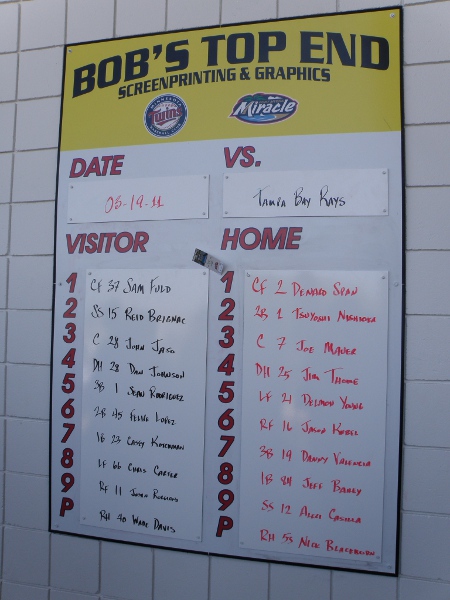 BOB'S TOP END
SCREENPRINTING & GRAPHICS
MINNESOTA
Twins
Miracle
DATE
VS.
03-19-11
TAMPA BAY RAYS
VISITOR
HOME
1 CF 37 SAM FULD
2 SS 15 REID BRIGNAC
3 C 28 JOHN JASO
4 DH 28 DAN JOHNSON
5 3B 1 SEAN RODRIGUEZ
6 2B 45 FELIPE LOPEZ
7 1B 23 CASEY KOTCHMAN
8 LF 66 CHRIS CARTER
9 RF 11 JUSTIN RUGGIANO
P RH 40 WADE DAVIS
1 CF 2 DENARD SPAN
2 2B 1 TSUYOSHI NISHIOKA
3 C 7 JOE MAUER
4 DH 25 JIM THOME
5 LF 21 DELMON YOUNG
6 RF 16 JASON KUBEL
7 3B 19 DANNY VALENCIA
8 1B 84 JEFF BAILEY
9 SS 12 ALEXI CASILLA
P RH 53 NICK BLACKBURN